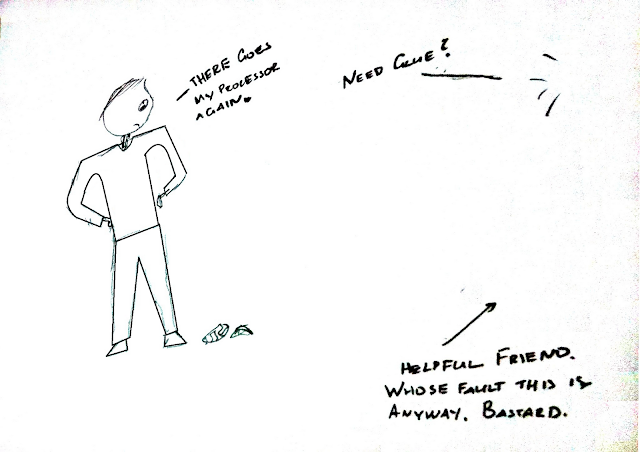 THERE GOES
MY PROCESSOR
AGAIN.
NEED GLUE?
HELPFUL FRIEND.
WHOSE FAULT THIS IS
ANYWAY. BASTARD.